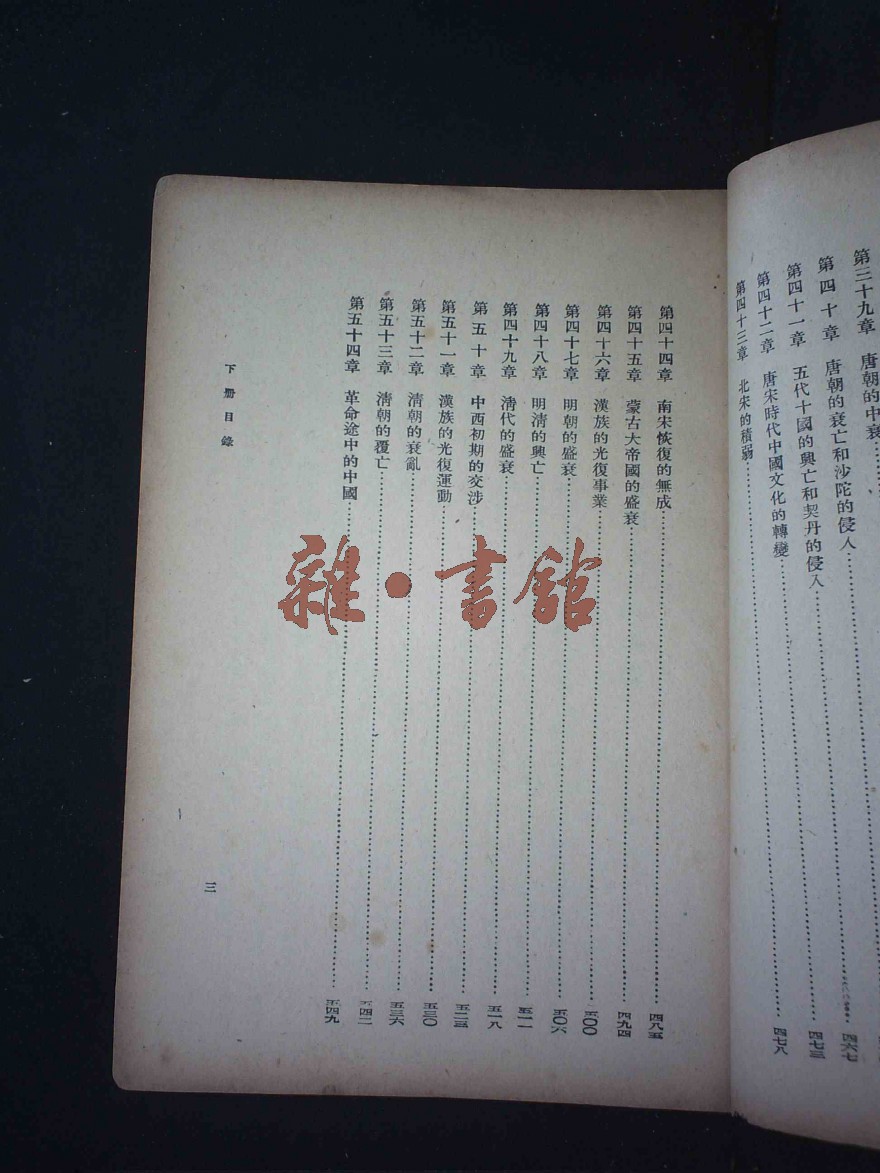 第三十九章 唐朝的中衰
第四十章 唐朝的衰亡和沙陀的侵入……四六七
第四十一章 五代十國的興亡和契丹的侵入……四七三
第四十二章 唐宋時代中國文化的轉變……四七八
第四十三章 北宋的積弱……
第四十四章 南宋恢復的無成……四八五
第四十五章 蒙古大帝國的盛衰……四九四
第四十六章 漢族的光復事業……五〇〇
第四十七章 明朝的盛衰……五〇六
第四十八章 明清的興亡……五一一
第四十九章 清代的盛衰……五一八
第五十章 中西初期的交涉……五二三
第五十一章 漢族的光復運動……五三〇
第五十二章 清朝的衰亂……五三六
第五十三章 清朝的覆亡……五四二
第五十四章 革命途中的中國……五四九
下册目錄
三
雜·書館